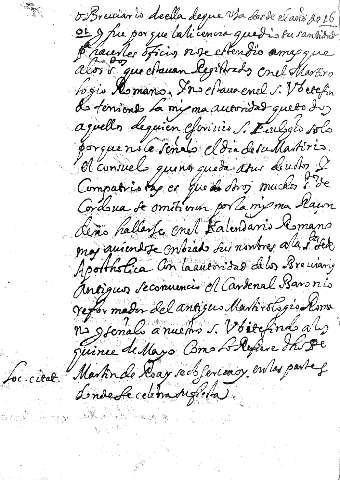 o Breviario de ella de que usa desde el año de 16
01 y fue porque la licencia que dio su santidad
para hacerles officios no se estendio a mas que
a los stos. que estauan Registrados en el Martiro
logio Romano, y no estauo en el S. Vbitefin
do teniendo la misma autoridad que todos
aquellos de quien escriuio S. Eulogio solo
porque no se señalo el dia de su Martirio.
el consuelo que nos queda a tus deuotos y
Compatriotas es que otros muchos stos. de
Cordoua se omitieron por la misma Raçon
de no hallarse en el Kalendario Romano
mas auiendose embiado sus nombres a la Sede
Apostholica con la autoridad de los Breviarios
Antiguos se conuencio el Cardenal Baronio
reformador del antiguo Martirologio Roma
no y señalo a nuestro S. Vbitefindo a los
quince de Mayo como lo Refiere dho Pe
Martin de Roa y se dh
en las partes
Loc. citat.
donde se celebra su fiesta.